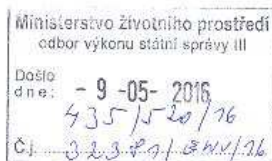 Ministerstvo životního prostředí
odbor výkonu státní správy III
Došlo
dne: - 9 -05- 2016
435/520/16
Č.j. 32381/ENV/16